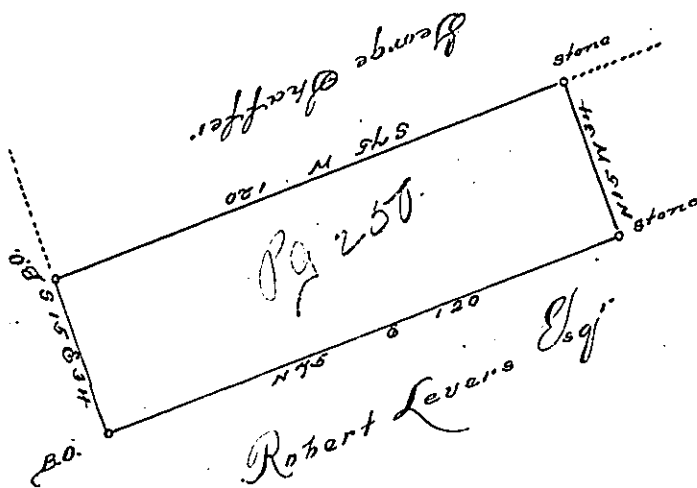 George Shaffer
Stone
S 75 W 120
N 15 W 34
Stone
B.O.
S 15 E 34
Pg 250.
N 75 E 120
B.O.
Robert Levers Esqr